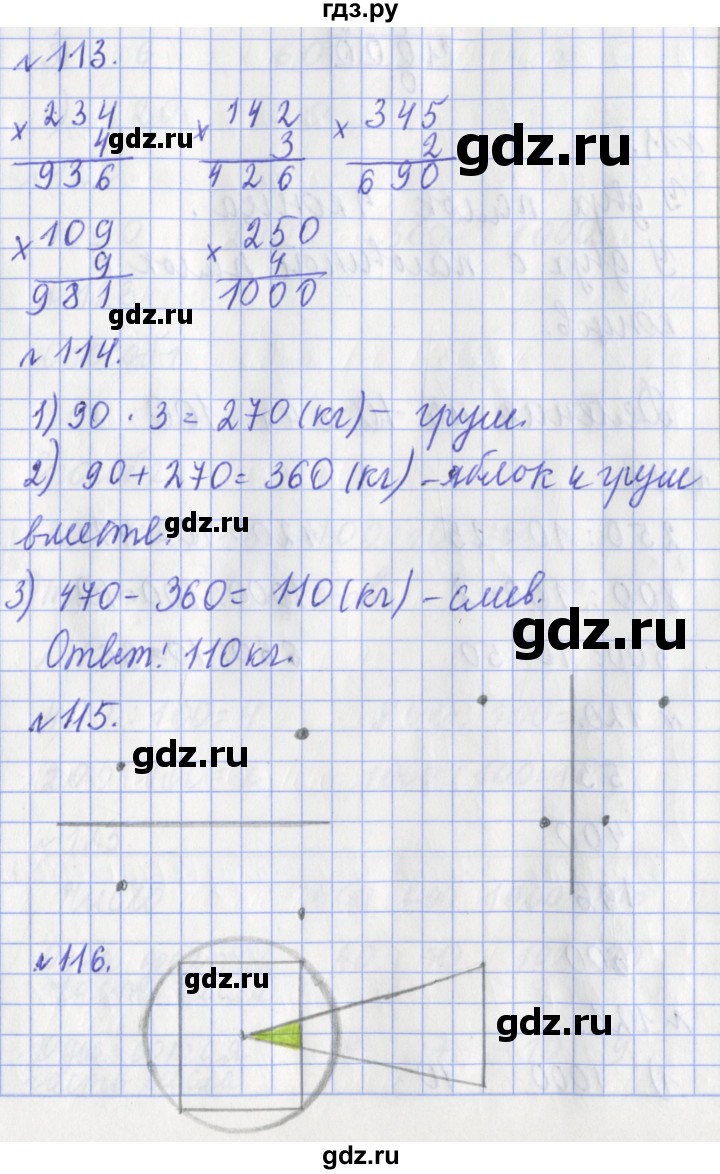 гдз.ру
№113.
× 234 × 142 × 345
4 3 2
936 426 690
gdz.ru
gdz.ru
× 109 × 250
9 4
981 1000
gdz.ru
№114.
1) 90 · 3 = 270 (кг) – груш.
2) 90 + 270 = 360 (кг) – яблок и груш
вместе.
gdz.ru
3) 470 – 360 = 110 (кг) – слив.
Ответ: 110 кг.
gdz.ru
№115.
gdz.ru
№116.
gdz.ru
gdz.ru
gdz.ru